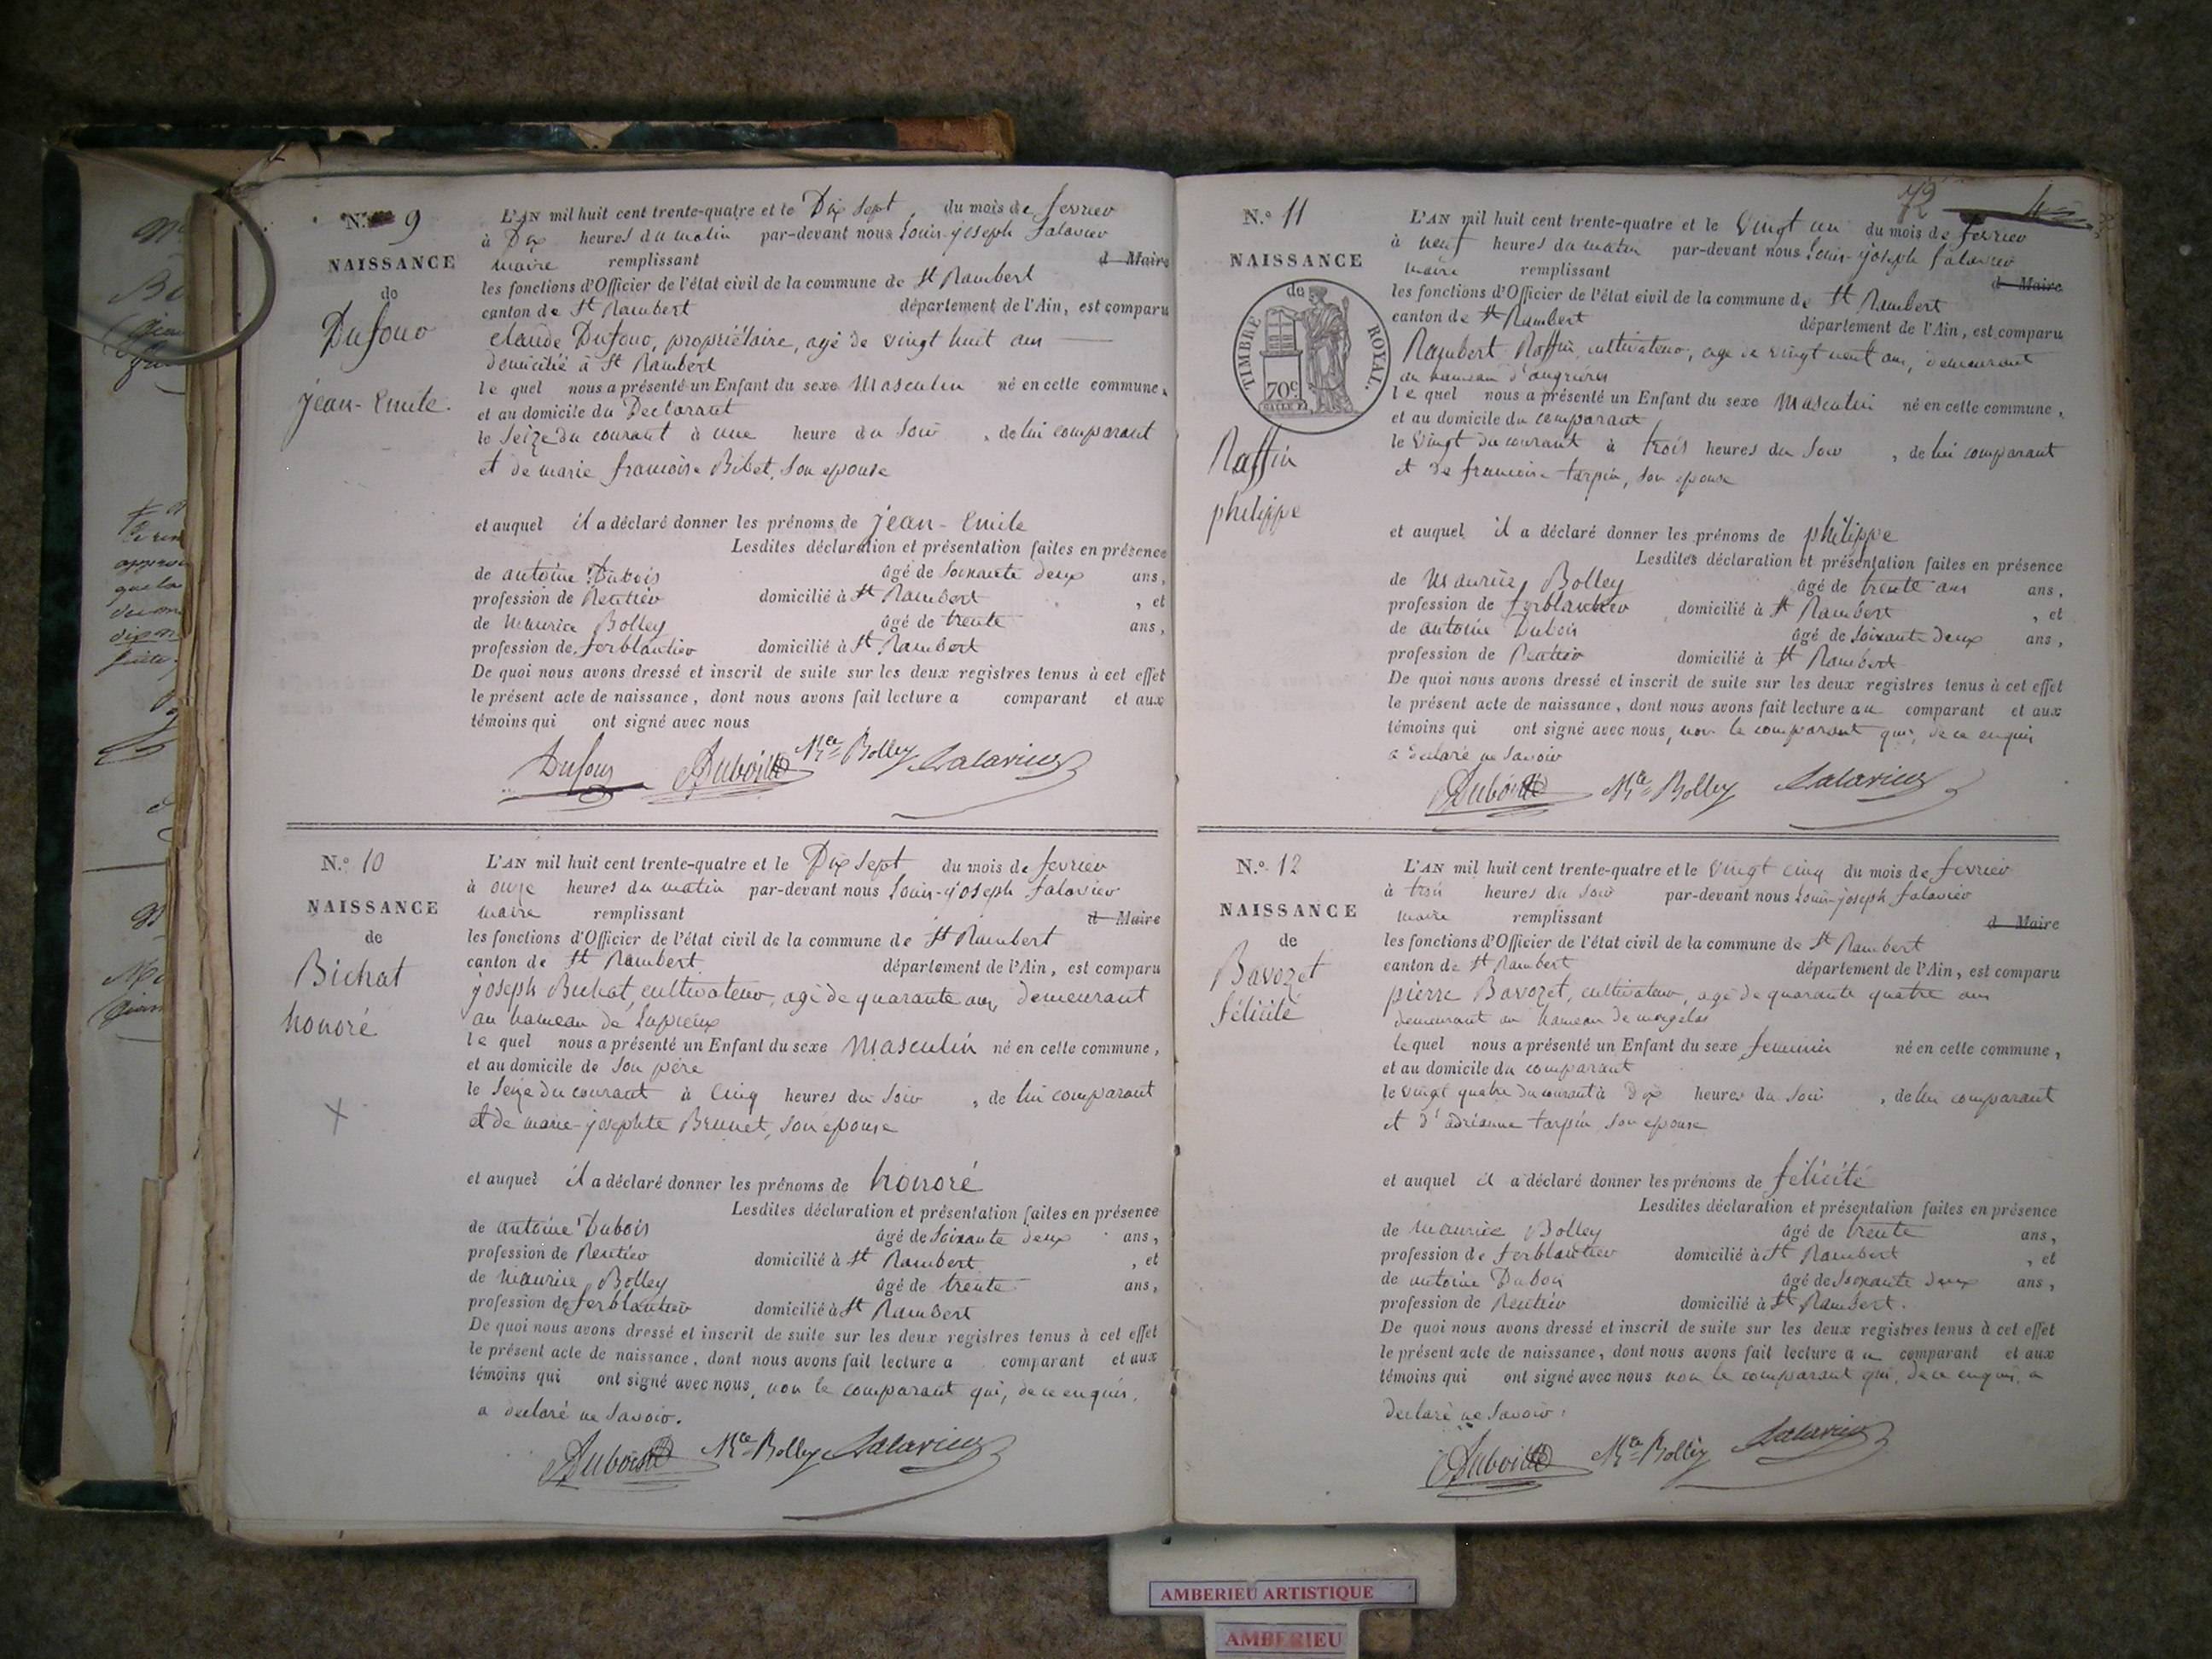 N.º 9
NAISSANCE
de
Dufour
jean-Emile.
L'AN mil huit cent trente-quatre et le Dix sept du mois de fevrier
à Dix heures du matin par-devant nous Louis-joseph Salavier
maire remplissant d Maire
les fonctions d'Officier de l'état civil de la commune de St Rambert
canton de St Rambert département de l'Ain, est comparu
claude Dufour, propriétaire, agé de vingt huit ans
domicilié à St Rambert
le quel nous a présenté un Enfant du sexe Masculin né en cette commune,
et au domicile du Declarant
le seize du courant à une heure du soir, de lui comparant
et de marie francoise Bibet, son epouse
et auquel il a déclaré donner les prénoms de jean-Emile
Lesdites déclaration et présentation faites en présence
de antoine Dubois âgé de soixante deux ans,
profession de Rentier domicilié à St Rambert, et
de Maurice Bolley âgé de trente ans,
profession de ferblantier domicilié à St Rambert
De quoi nous avons dressé et inscrit de suite sur les deux registres tenus à cet effet
le présent acte de naissance, dont nous avons fait lecture a comparant et aux
témoins qui ont signé avec nous
Dufour ADubois Mce Bolley Salavier
N.º 10
NAISSANCE
de
Bichat
honoré
L'AN mil huit cent trente-quatre et le Dix sept du mois de fevrier
à onze heures du matin par-devant nous Louis-joseph Salavier
maire remplissant d Maire
les fonctions d'Officier de l'état civil de la commune de St Rambert
canton de St Rambert département de l'Ain, est comparu
joseph Bichat, cultivateur, agé de quarante ans, demeurant
au hameau de
le quel nous a présenté un Enfant du sexe Masculin né en cette commune,
et au domicile de son père
le seize du courant à cinq heures du soir, de lui comparant
et de marie-josephte Brunet, son épouse
et auquel il a déclaré donner les prénoms de honoré
Lesdites déclaration et présentation faites en présence
de antoine Dubois âgé de soixante deux ans,
profession de Rentier domicilié à St Rambert, et
de Maurice Bolley âgé de trente ans,
profession de ferblantier domicilié à St Rambert
De quoi nous avons dressé et inscrit de suite sur les deux registres tenus à cet effet
le présent acte de naissance, dont nous avons fait lecture a comparant et aux
témoins qui ont signé avec nous, non le comparant qui, de ce enquis,
a declaré ne savoir.
ADubois Mce Bolley Salavier
72
N.º 11
NAISSANCE
de
TIMBRE ROYAL.
70c
Raffin
philippe
L'AN mil huit cent trente-quatre et le vingt un du mois de fevrier
à neuf heures du matin par-devant nous Louis-joseph Salavier
maire remplissant d Maire
les fonctions d'Officier de l'état civil de la commune de St Rambert
canton de St Rambert département de l'Ain, est comparu
Rambert Raffin, cultivateur, agé de vingt neuf ans, demeurant
au hameau d'angrières
le quel nous a présenté un Enfant du sexe Masculin né en cette commune,
et au domicile du comparant
le vingt du courant à trois heures du soir, de lui comparant
et de francoise tarpin, son epouse
et auquel il a déclaré donner les prénoms de philippe
Lesdites déclaration et présentation faites en présence
de Maurice Bolley âgé de trente ans ans,
profession de ferblantier domicilié à St Rambert, et
de antoine Dubois âgé de soixante deux ans,
profession de Rentier domicilié à St Rambert
De quoi nous avons dressé et inscrit de suite sur les deux registres tenus à cet effet
le présent acte de naissance, dont nous avons fait lecture au comparant et aux
témoins qui ont signé avec nous, non le comparant qui, de ce enquis
a declaré ne savoir
ADubois Mce Bolley Salavier
N.º 12
NAISSANCE
de
Bavozet
félicité
L'AN mil huit cent trente-quatre et le vingt cinq du mois de fevrier
à trois heures du soir par-devant nous Louis-joseph Salavier
maire remplissant d Maire
les fonctions d'Officier de l'état civil de la commune de St Rambert
canton de St Rambert département de l'Ain, est comparu
pierre Bavozet, cultivateur, agé de quarante quatre ans
demeurant au hameau de morgelas
le quel nous a présenté un Enfant du sexe feminin né en cette commune,
et au domicile du comparant
le vingt quatre du courant à dix heures du soir, de lui comparant
et d'adrianne tarpin, son epouse
et auquel il a déclaré donner les prénoms de félicité
Lesdites déclaration et présentation faites en présence
de Maurice Bolley âgé de trente ans,
profession de ferblantier domicilié à St Rambert, et
de antoine Dubois âgé de soixante deux ans,
profession de Rentier domicilié à St Rambert.
De quoi nous avons dressé et inscrit de suite sur les deux registres tenus à cet effet
le présent acte de naissance, dont nous avons fait lecture au comparant et aux
témoins qui ont signé avec nous non le comparant qui, de ce enquis, a
declaré ne savoir.
ADubois Mce Bolley Salavier
AMBERIEU ARTISTIQUE
AMBERIEU